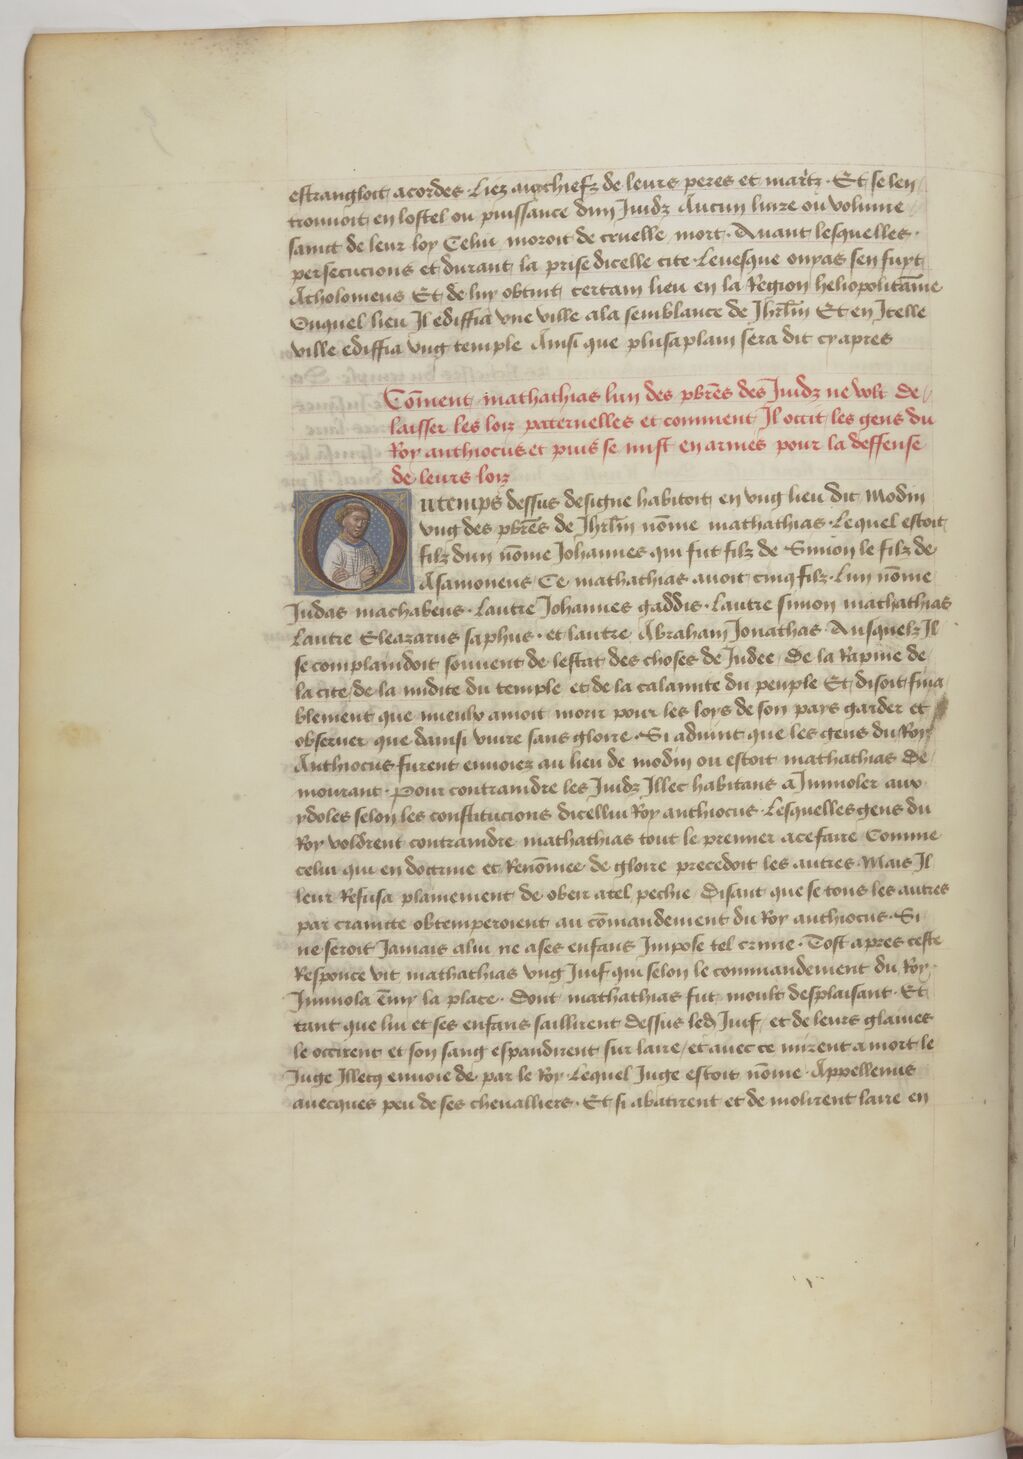 estrangloit a cordes liez au chiefz de leurs peres et martz · Et se len
trouuoit en lostel ou puissance dun Juidz Aucun liure ou volume
sainct de leur loy Celui moroit de cruelle mort · Auant lesquelles ·
persecucions et durant la prise dicelle cite · Leuesque onyas sen fuyt
A tholomeus Et de luy obtint certain lieu en la Region heliopolitāīne
Ouquel lieu Il ediffia vne ville a la semblance de Jhrlm̄ Et en Icelle
ville ediffia vng temple Ainsi que plus a plain sera dit cy apres
Cōment mathathias lun des pbrēs des Juidz ne volt de
laisser les loix paternelles et comment Il occit les gens du
Roy anthiocus et puis se mist en armes pour la deffense
de leurs loix
Ou temps dessus designe habitoit en vng lieu dit Modin
vng des pbrēs de Jhrlm̄ nōme mathathias · Lequel estoit
filz dun nōme Johannes qui fut filz de Simon le filz de
Asamoneus Ce mathathias auoit cinq filz · Lun nōme
Judas machabeus · Lautre Johannes gaddis · Lautre simon mathathias
Lautre Eleazarus saphus · et lautre Abraham Jonathas · Ausquelz Il
se complaindoit souuent de lestat des choses de Judee · De la Rapine de
la cite / de la nudite du temple et de la calamite du peuple Et disoit fina
blement que mieulx amoit morir pour les loys de son pays garder et
obseruer que dainsi viure sans gloire · Si aduint que les gens du Roy
Anthiocus furent enuoiez au lieu de modin ou estoit mathathias de
mourant · Pour contraindre les Juidz Illec habitans a Immoler aux
ydoles selon les constitucions dicellui Roy anthiocus · Lesquelles gens du
Roy voldrent contraindre mathathias tout le premier a ce faire Comme
celui qui en doctrine et Renōmee de gloire precedoit les autres · Mais Il
leur Refusa plainement de obeir a tel pechie Disant que se tous les autres
par crainte obtemperoient au cōmandement du Roy anthiocus · Si
ne seroit Jamais a lui ne a ses enfans Impose tel crime · Tost apres ceste
Responce vit mathathias vng Juif qui selon le commandement du Roy
Immola ēmy la place · Dont mathathias fut moult desplaisant · Et
tant que lui et ses enfans saillirent dessus led Juif / et de leurs glaiues
le occirent et son sang espandirent sur laire / et auec ce mirent a mort le
Juge Illecq enuoie de par le Roy · Lequel Juge estoit nōme · Appellenus
auecques peu de ses cheualliers · Et si abatirent et demolirent laire en